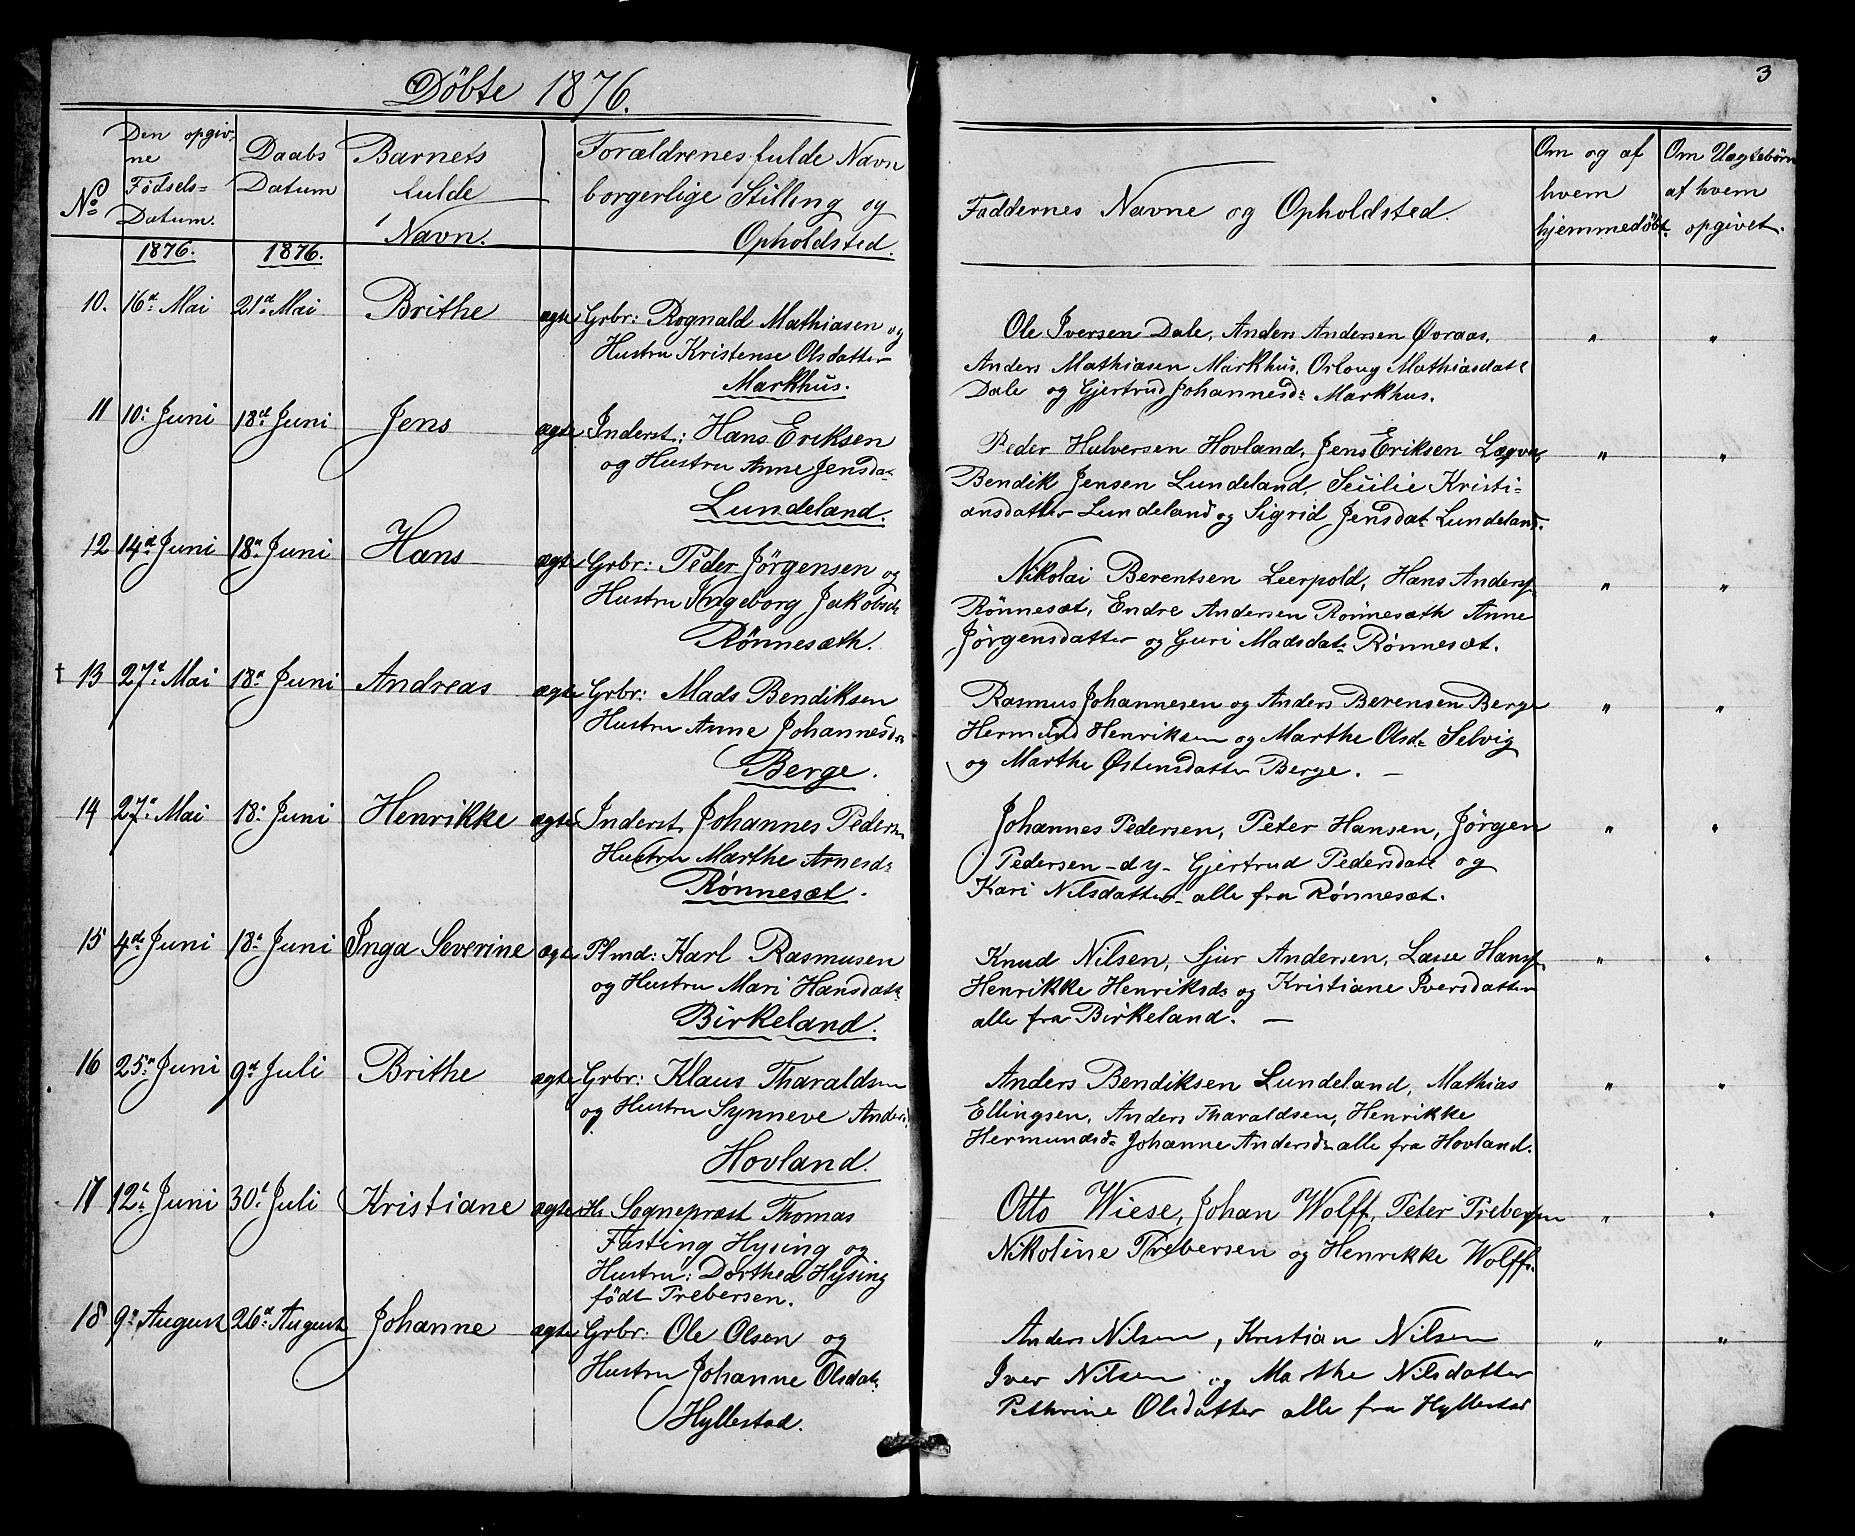 Döbte 1876.
3
No
Den opgiv-
ne
Födsels-
Datum.
Daabs
Datum
Barnets
fulde
Navn.
Forældrenes fulde Navn
borgerlige Stilling og
Opholdsted.
Faddernes Navne og Opholdsted.
Om og af
hvem
hjemmedöbt.
Om Uægtebörn
af hvem
opgivet.
1876. 1876.
10. 16d Mai 21d Mai Brithe ægte Grbr: Rognald Mathiasen og
Hustru Kristense Olsdatter
Markhus.
Ole Iversen Dale, Anders Andersen Øvraas, " "
Anders Mathiasen Markhus, Orloug Mathiasdat
Dale og Gjertrud Johannesd: Markhus.
11 10: Juni 18d Juni Jens ægte Inderst: Hans Eriksen
og Hustru Anne Jensda-
Lundeland.
Peder Halversen Hovland, Jens Eriksen " "
Bendik Jensen Lundeland, Secilie Kristi-
ansdatter Lundeland og Sigrid Jensdat Lundeland.
12 14d Juni 18n Juni Hans ægte Grbr: Peder Jörgensen og
Hustru Ingeborg Jakobsd:
Rönnesæth.
Nikolai Berentsen Leerpold, Hans Anders " "
Rönnesæt, Endre Andersen Rönnesæth Anne
Jörgensdatter og Guri Madsdat: Rønnesæt.
† 13 27d Mai 18n Juni Andreas ægte Grbr: Mads Bendiksen
Hustru Anne Johannesda
Berge.
Rasmus Johannesen og Anders Berensen Berge " "
Hermund Henriksen og Marthe Olsd: Selvig
og Marthe Østensdatter Berge. —
14 27n Mai 18: Juni Henrikke ægte Inderst. Johannes Peders
Hustru Marthe Arnesd:
Rønnesæt.
Johannes Pedersen, Peter Hansen, Jörgen " "
Pedersen - dy - Gjertrud Pedersdat og
Kari Nilsdatter - alle fra Rønnesæt.
15 4de Juni 18: Juni Inga Severine ægte Plmd: Karl Rasmusen
og Hustru Mari Hansdat:
Birkeland.
Knud Nilsen, Sjur Andersen, Lasse Hans " "
Henrikke Henriksd: og Kristiane Iversdatter
alle fra Birkeland. —
16 25n Juni 9d Juli Brithe ægte Grbr: Klaus Tharaldsen
og Hustru Synneve Anders
Hovland.
Anders Bendiksen Lundeland, Mathias " "
Ellingsen, Anders Tharaldsen, Henrikke
Hermundsd: Johanne Andersd: alle fra Hovland.
17 12t Juni 30t Juli Kristiane ægte Hr. Sognepræst Thomas
Fasting Hysing og
Hustru: Dorthea Hysing
födt Trebersen.
Otto Wiese, Johan Wolff, Peter Trebersen " "
Nikoline Trebersen og Henrikke Wolff.
18 9n August 26d August Johanne ægte Grbr: Ole Olsen og
Hustru Johanne Olsdat:
Hyllestad.
Anders Nilsen, Kristian Nilsen " "
Iver Nilsen og Marthe Nilsdatter
Pethrine Olsdatter alle fra Hyllestad